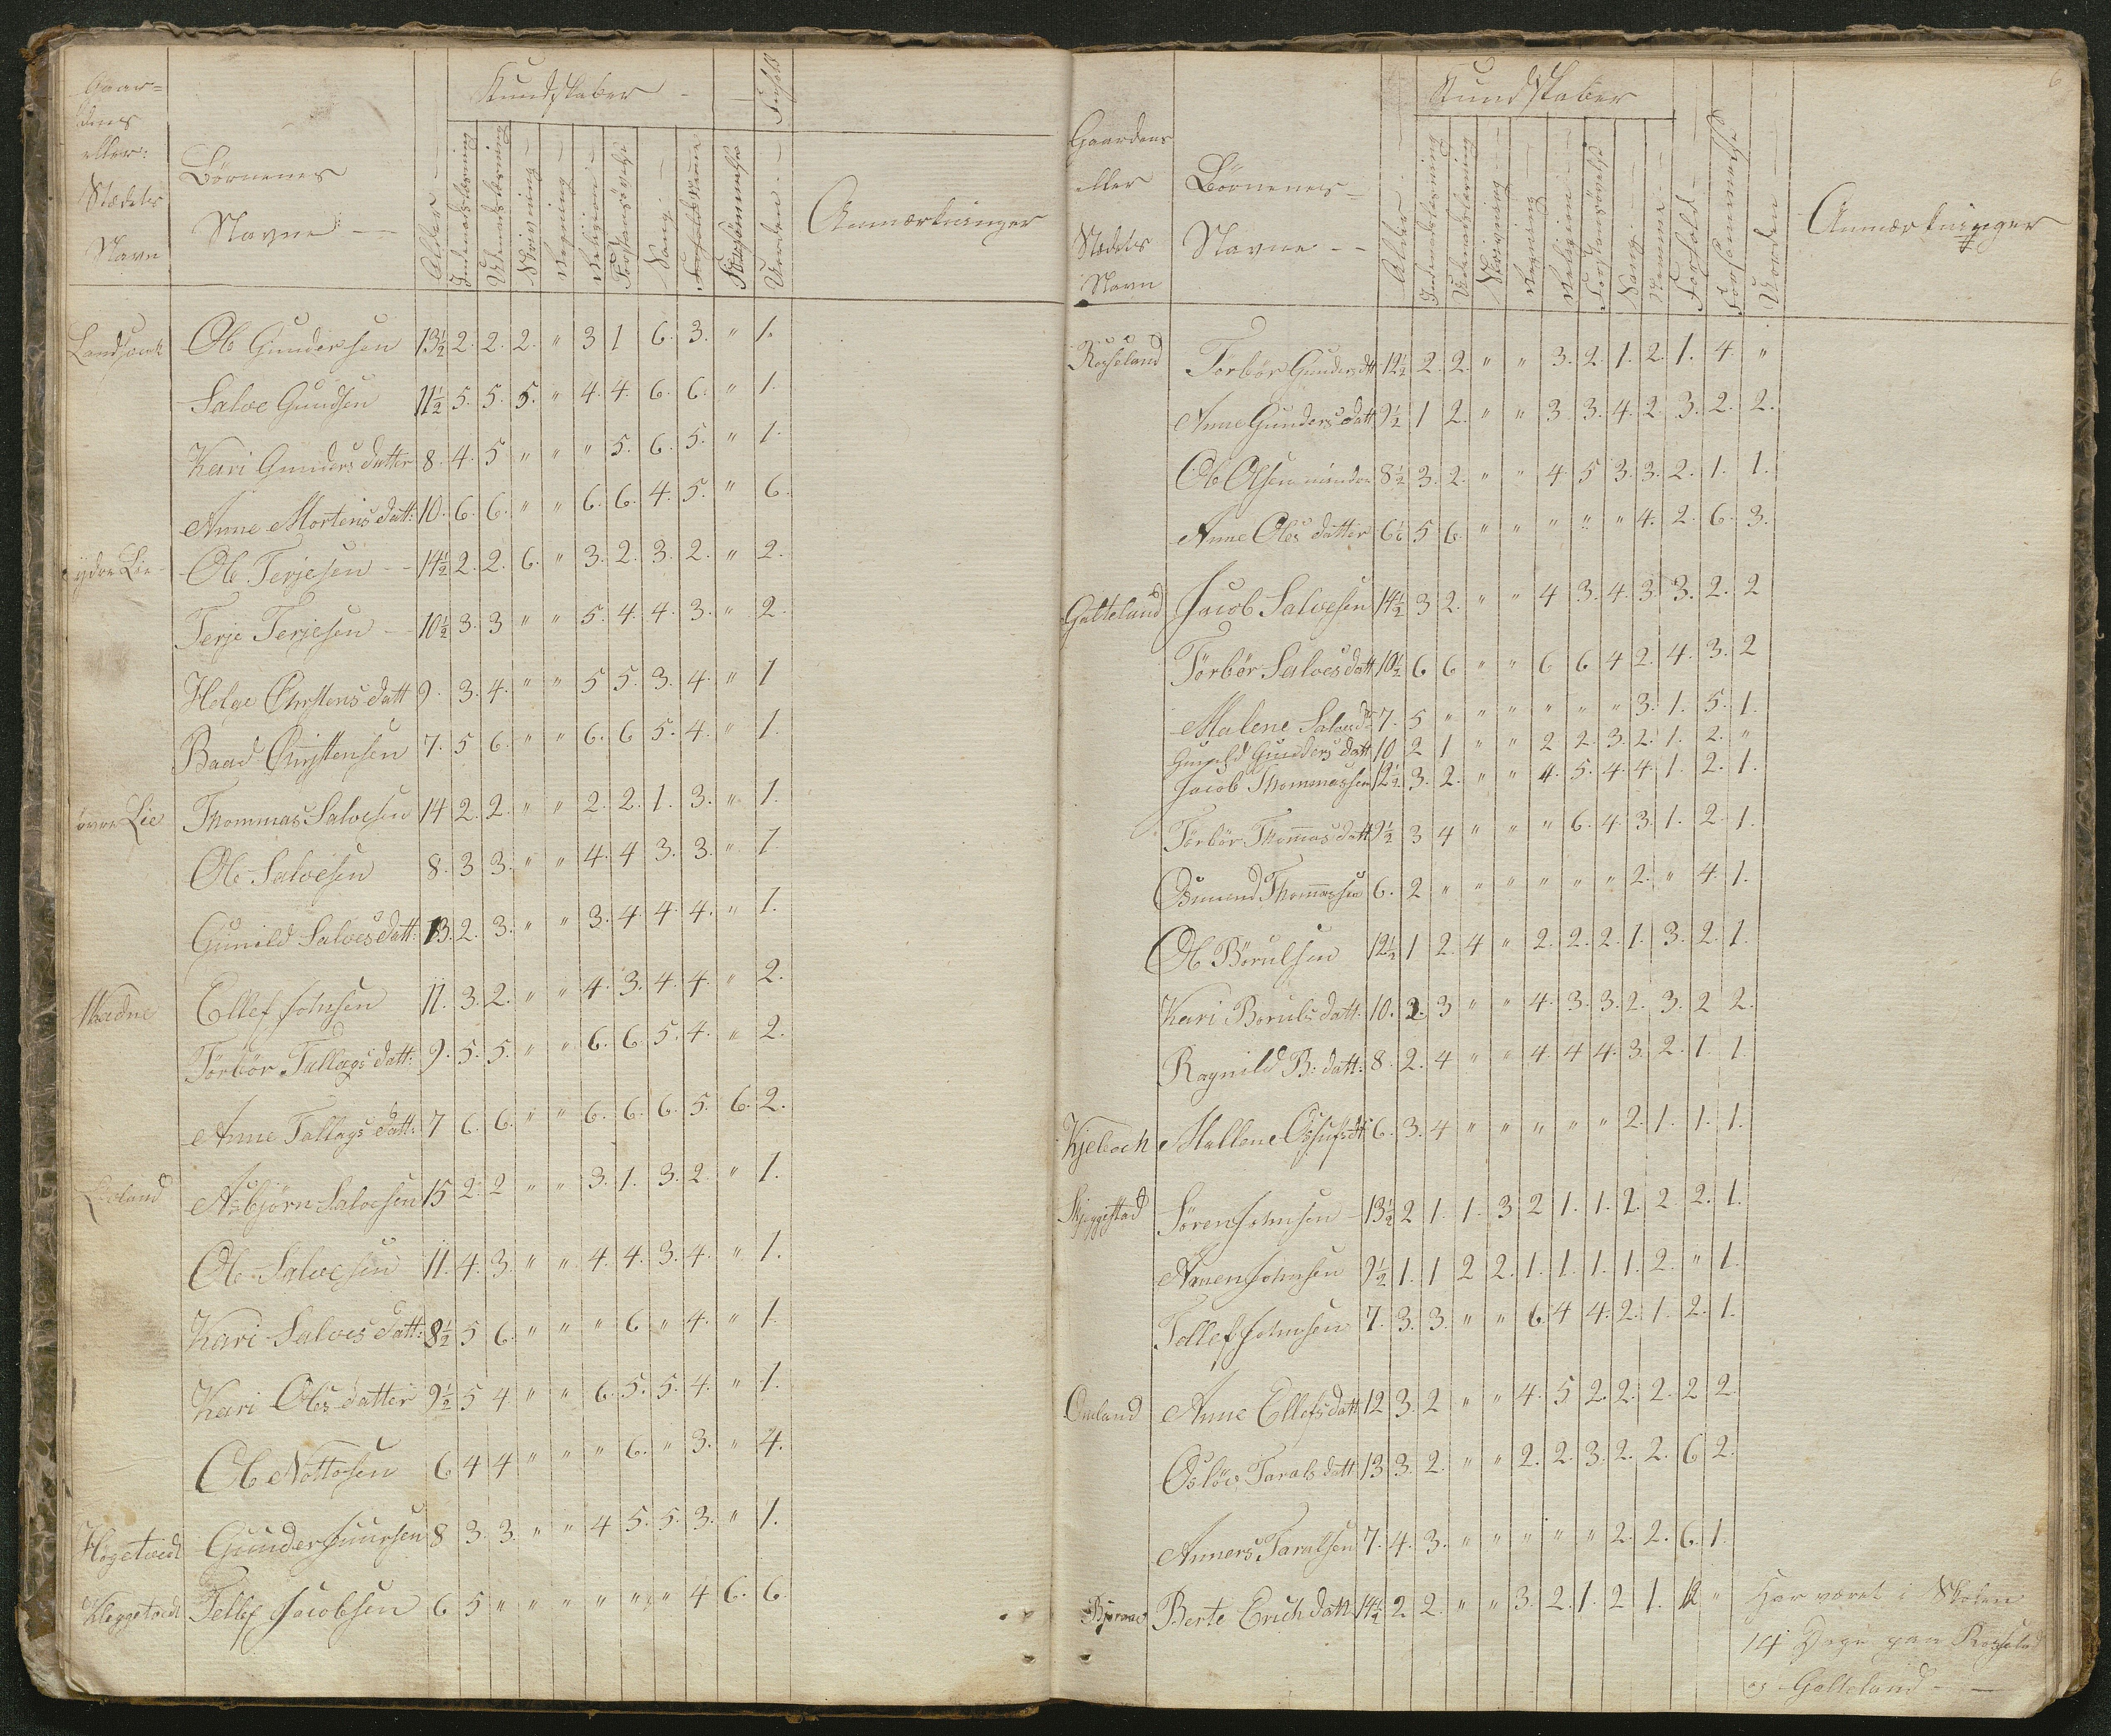 Gaar=
dens
eller
Stædets
Navn
Børnenes
Navne
Alder
Kundskaber
Indenadslæsning
Udenadslæsning
Skrivning
Regning
Religion
Forstandsøvelse
Sang
Forsømmelse
Uorden
Forhold
Anmærkninger
Landsverk Ole Gundersen 13½ 2. 2. 2. " 3 1 6. 3. " 1.
Salve Gundsen 11½ 5. 5. 5. " 4. 4. 6. 6. " 1.
Kari Gunders datter 8. 4. 5 " " " 5. 6. 5. " 1.
Anne Mortens datt: 10. 6. 6. " " 6. 6. 4. 5. " 6.
ydre Lie Ole Terjesen 14½ 2. 2. 6. " 3. 2. 3. 2. " 2.
Terje Terjesen 10½ 3. 3 " " 5. 4. 4. 3. " 2.
Helge Chrstens datt 9. 3. 4. " " 5 5. 3. 4. " 1
Baad Christensen 7. 5 6. " " 6. 6 5. 4. " 1.
øvre Lie Thommas Salvesen 14 2. 2. " " 2. 2. 1. 3. " 1.
Ole Salvesen 8. 3 3. " " 4. 4 3. 3. " 1.
Gunild Salvesdatt: 13. 2. 3. " " 3. 4. 4. 4. " 1.
Ellef Johnsen 11. 3. 2. " " 4. 3. 4. 4. " 2.
Tørbør Tallags datt: 9. 5. 5. " " 6. 6. 5. 4. " 2.
Anne Tallags datt: 7 6. 6. " " 6. 6. 6. 5. 6. 2.
Asbjørn Salvesen 15 2. 2 " " 3. 1. 3. 2. " 1.
Ole Salvesen 11. 4. 3. " " 4. 4. 3. 4. " 1.
Kari Salves datt: 8½ 5 6. " " " 6 " 4. " 1.
Kari Oles datter 9½ 5 4 " " 6. 5. 5. 4. " 1.
Ole Nottosen 6 4 4 " " " 6. " 3. " 4.
Høgetvedt Gunder Juursen 8 3. 3. " " 4 5. 5. 3. " 1.
Kleggetvedt Tellef Jacobsen 6 5 " " " " " " 4 6. 6.
6
Gaardens
eller
Stædets
Navn
Børnenes
Navne
Alder
Kundskaber
Indenadslæsning
Udenadslæsning
Skrivning
Regning
Religion
Forstandsøvelse
Sang
Nemme
Forhold
Forsømmelse
Uorden
Anmærkninger
Røsseland Torbør Gundersdtt 12½ 2. 2. " " 3. 2. 1. 2. 1. 4. "
Anne Gundersdatt 9½ 1 2. " " 3. 3. 4. 2. 3. 2. 2.
Ole Olsen mindre 8½ 3. 2. " " 4 5 3. 3. 2. 1. 1.
Anne Oles datter 6½ 5 6. " " " " " 4. 2. 6. 3.
Galteland Jacob Salvesen 14½ 3 2. " " 4 3. 4. 3. 3. 2. 2
Tørbør Salvesdatt 10½ 6 6 " " 6 6 4 2. 4. 3. 2
Malene Salvesd 7. 5 " " " " " " 3. 1. 5. 1.
Gunild Gunders datt 10 2 1 " " 2 2. 3. 2. 1. 2. "
Jacob Thommassen 12½. 3. 2. " " 4. 5. 4. 4. 1. 2. 1.
Tørbør Thomasdatt 9½ 3 4 " " " 6. 4. 3. 1. 2. 1.
Osmund Thomassen 6. 2 " " " " " " 2. " 4. 1.
Ole Børulsen 12½ 1 2. 4 " 2. 2. 2. 1. 3. 2. 1.
Kari Boruls datt. 10. 2. 3 " " 4. 3. 3. 2. 3. 2 2.
Ragnild B: datt: 8. 2. 4 " " 4. 4 4. 3. 2. 1. 1.
Mallene 6. 3. 4 " " " " " 2. 1. 1. 1.
Skjeggestad Søren Johnsen 13½ 2 1. 1. 3 2 1. 1. 1. 2 2. 1.
Aanen Johnsen 9½ 1. 1 2 2. 1. 1. 1. 1. 2. " 1.
Tellef Johnsen 7. 3. 3. " " 6. 4 4. 2. 1. 2. 1.
Omland Anne Ellefsdatt 12 3. 2 " " 4. 5 2. 2. 2. 2 2.
Osløv Taralsdatt 13 3. 2. " " 2. 2. 3. 2. 2. 6 2.
Anners Taralsen 7. 4. 3. " " " " " 2. 2. 6. 1.
Berte Erichdatt 14½ 2 2. " " 3. 2. 1. 2 1. "
Har været i Skolen
14 Dage paa Rosseland
og Galteland